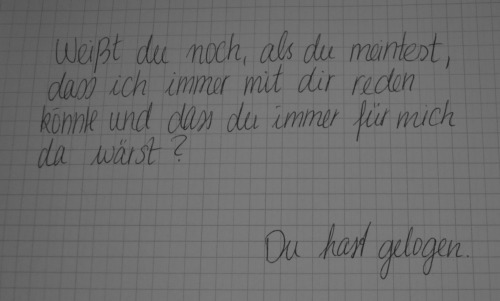 Weißt du noch, als du meintest,
dass ich immer mit dir reden
könnte und dass du immer für mich
da wärst?
Du hast gelogen.